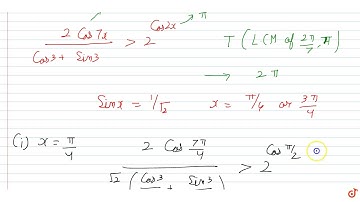 2 Cos 7x / Cos3 + Sin3 > 2^Cos2x → π
T ( LCM of 2π/7, π )
→ 2π
Sinx = 1/√2 x = π/4 or 3π/4
(i) x = π/4 2 Cos 7π/4 / √2 ( Cos3 + Sin3 ) > 2^Cos π/2